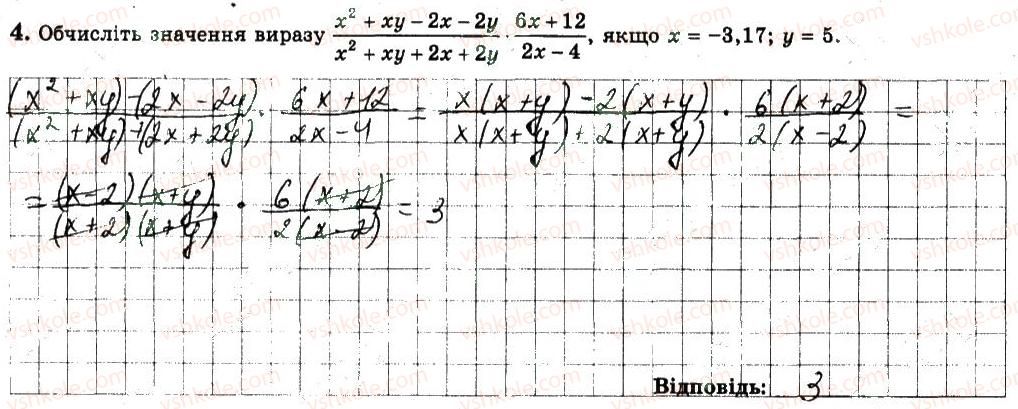 4. Обчисліть значення виразу (x² + xy − 2x − 2y)/(x² + xy + 2x + 2y) · (6x + 12)/(2x − 4), якщо x = −3,17; y = 5.
((x² + xy) − (2x − 2y))/((x² + xy) + (2x + 2y)) · (6x + 12)/(2x − 4) = (x(x + y) − 2(x + y))/(x(x + y) + 2(x + y)) · 6(x + 2)/2(x − 2) =
= (x − 2)(x + y)/(x + 2)(x + y) · 6(x + 2)/2(x − 2) = 3
Відповідь: 3
vshkole.com